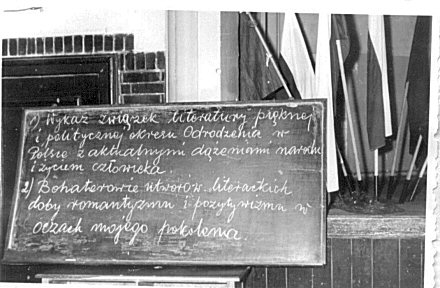 1) Wykaż związek literatury pięknej
i politycznej okresu Odrodzenia w
Polsce z aktualnymi dążeniami narodu
i życiem człowieka.
2) Bohaterowie utworów literackich
doby romantyzmu i pozytywizmu w
oczach mojego pokolenia.